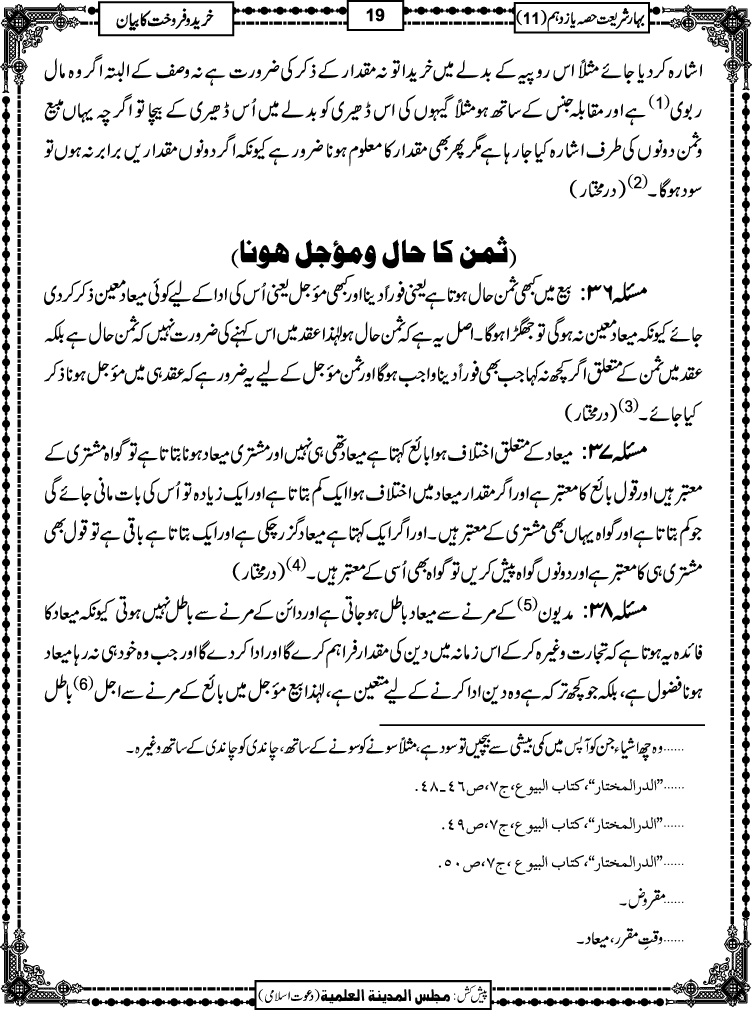 بہارِ شریعت حصہ یازدہم (11)
19
خرید و فروخت کا بیان
اشارہ کر دیا جائے مثلاً اس روپیہ کے بدلے میں خریدا تو نہ مقدار کے ذکر کی ضرورت ہے نہ وصف کے البتہ اگر وہ مال
ربوی(1) ہے اور مقابلہ جنس کے ساتھ ہو مثلاً گیہوں کی اس ڈھیری کو بدلے میں اُس ڈھیری کے بیچا تو اگرچہ یہاں مبیع
و ثمن دونوں کی طرف اشارہ کیا جا رہا ہے مگر پھر بھی مقدار کا معلوم ہونا ضرور ہے کیونکہ اگر دونوں مقداریں برابر نہ ہوں تو
سود ہوگا۔(2) (درمختار)
(ثمن کا حال ومؤجل ھونا)
مسئلہ ۳۶: بیع میں کبھی ثمن حال ہوتا ہے یعنی فوراً دینا اور کبھی مؤجل یعنی اُس کی ادا کے لیے کوئی میعاد معین ذکر کر دی
جائے کیونکہ میعاد معین نہ ہوگی تو جھگڑا ہوگا۔ اصل یہ ہے کہ ثمن حال ہو لہٰذا عقد میں اس کہنے کی ضرورت نہیں کہ ثمن حال ہے بلکہ
عقد میں ثمن کے متعلق اگر کچھ نہ کہا جب بھی فوراً دینا واجب ہوگا اور ثمن مؤجل کے لیے یہ ضرور ہے کہ عقد ہی میں مؤجل ہونا ذکر
کیا جائے۔(3) (درمختار)
مسئلہ ۳۷: میعاد کے متعلق اختلاف ہوا بائع کہتا ہے میعاد تھی ہی نہیں اور مشتری میعاد ہونا بتاتا ہے تو گواہ مشتری کے
معتبر ہیں اور قول بائع کا معتبر ہے اور اگر مقدار میعاد میں اختلاف ہوا ایک کم بتاتا ہے اور ایک زیادہ تو اُس کی بات مانی جائے گی
جو کم بتاتا ہے اور گواہ یہاں بھی مشتری کے معتبر ہیں۔ اور اگر ایک کہتا ہے میعاد گزر چکی ہے اور ایک بتاتا ہے باقی ہے تو قول بھی
مشتری ہی کا معتبر ہے اور دونوں گواہ پیش کریں تو گواہ بھی اُسی کے معتبر ہیں۔(4) (درمختار)
مسئلہ ۳۸: مدیون(5) کے مرنے سے میعاد باطل ہو جاتی ہے اور دائن کے مرنے سے باطل نہیں ہوتی کیونکہ میعاد کا
فائدہ یہ ہوتا ہے کہ تجارت وغیرہ کر کے اس زمانہ میں دین کی مقدار فراہم کرے گا اور ادا کر دے گا اور جب وہ خود ہی نہ رہا میعاد
ہونا فضول ہے، بلکہ جو کچھ ترکہ ہے وہ دین ادا کرنے کے لیے متعین ہے، لہٰذا بیع مؤجل میں بائع کے مرنے سے اجل(6) باطل
......وہ چھ اشیاء جن کو آپس میں کمی بیشی سے بیچیں تو سود ہے، مثلاً سونے کو سونے کے ساتھ، چاندی کو چاندی کے ساتھ وغیرہ۔
......”الدرالمختار“، کتاب البیوع، ج۷، ص۴۶۔۴۸.
......”الدرالمختار“، کتاب البیوع، ج۷، ص۴۹.
......”الدرالمختار“، کتاب البیوع، ج۷، ص۵۰.
......مقروض۔
......وقتِ مقرر، میعاد۔
پیش کش: مجلس المدینۃ العلمیۃ (دعوت اسلامی)